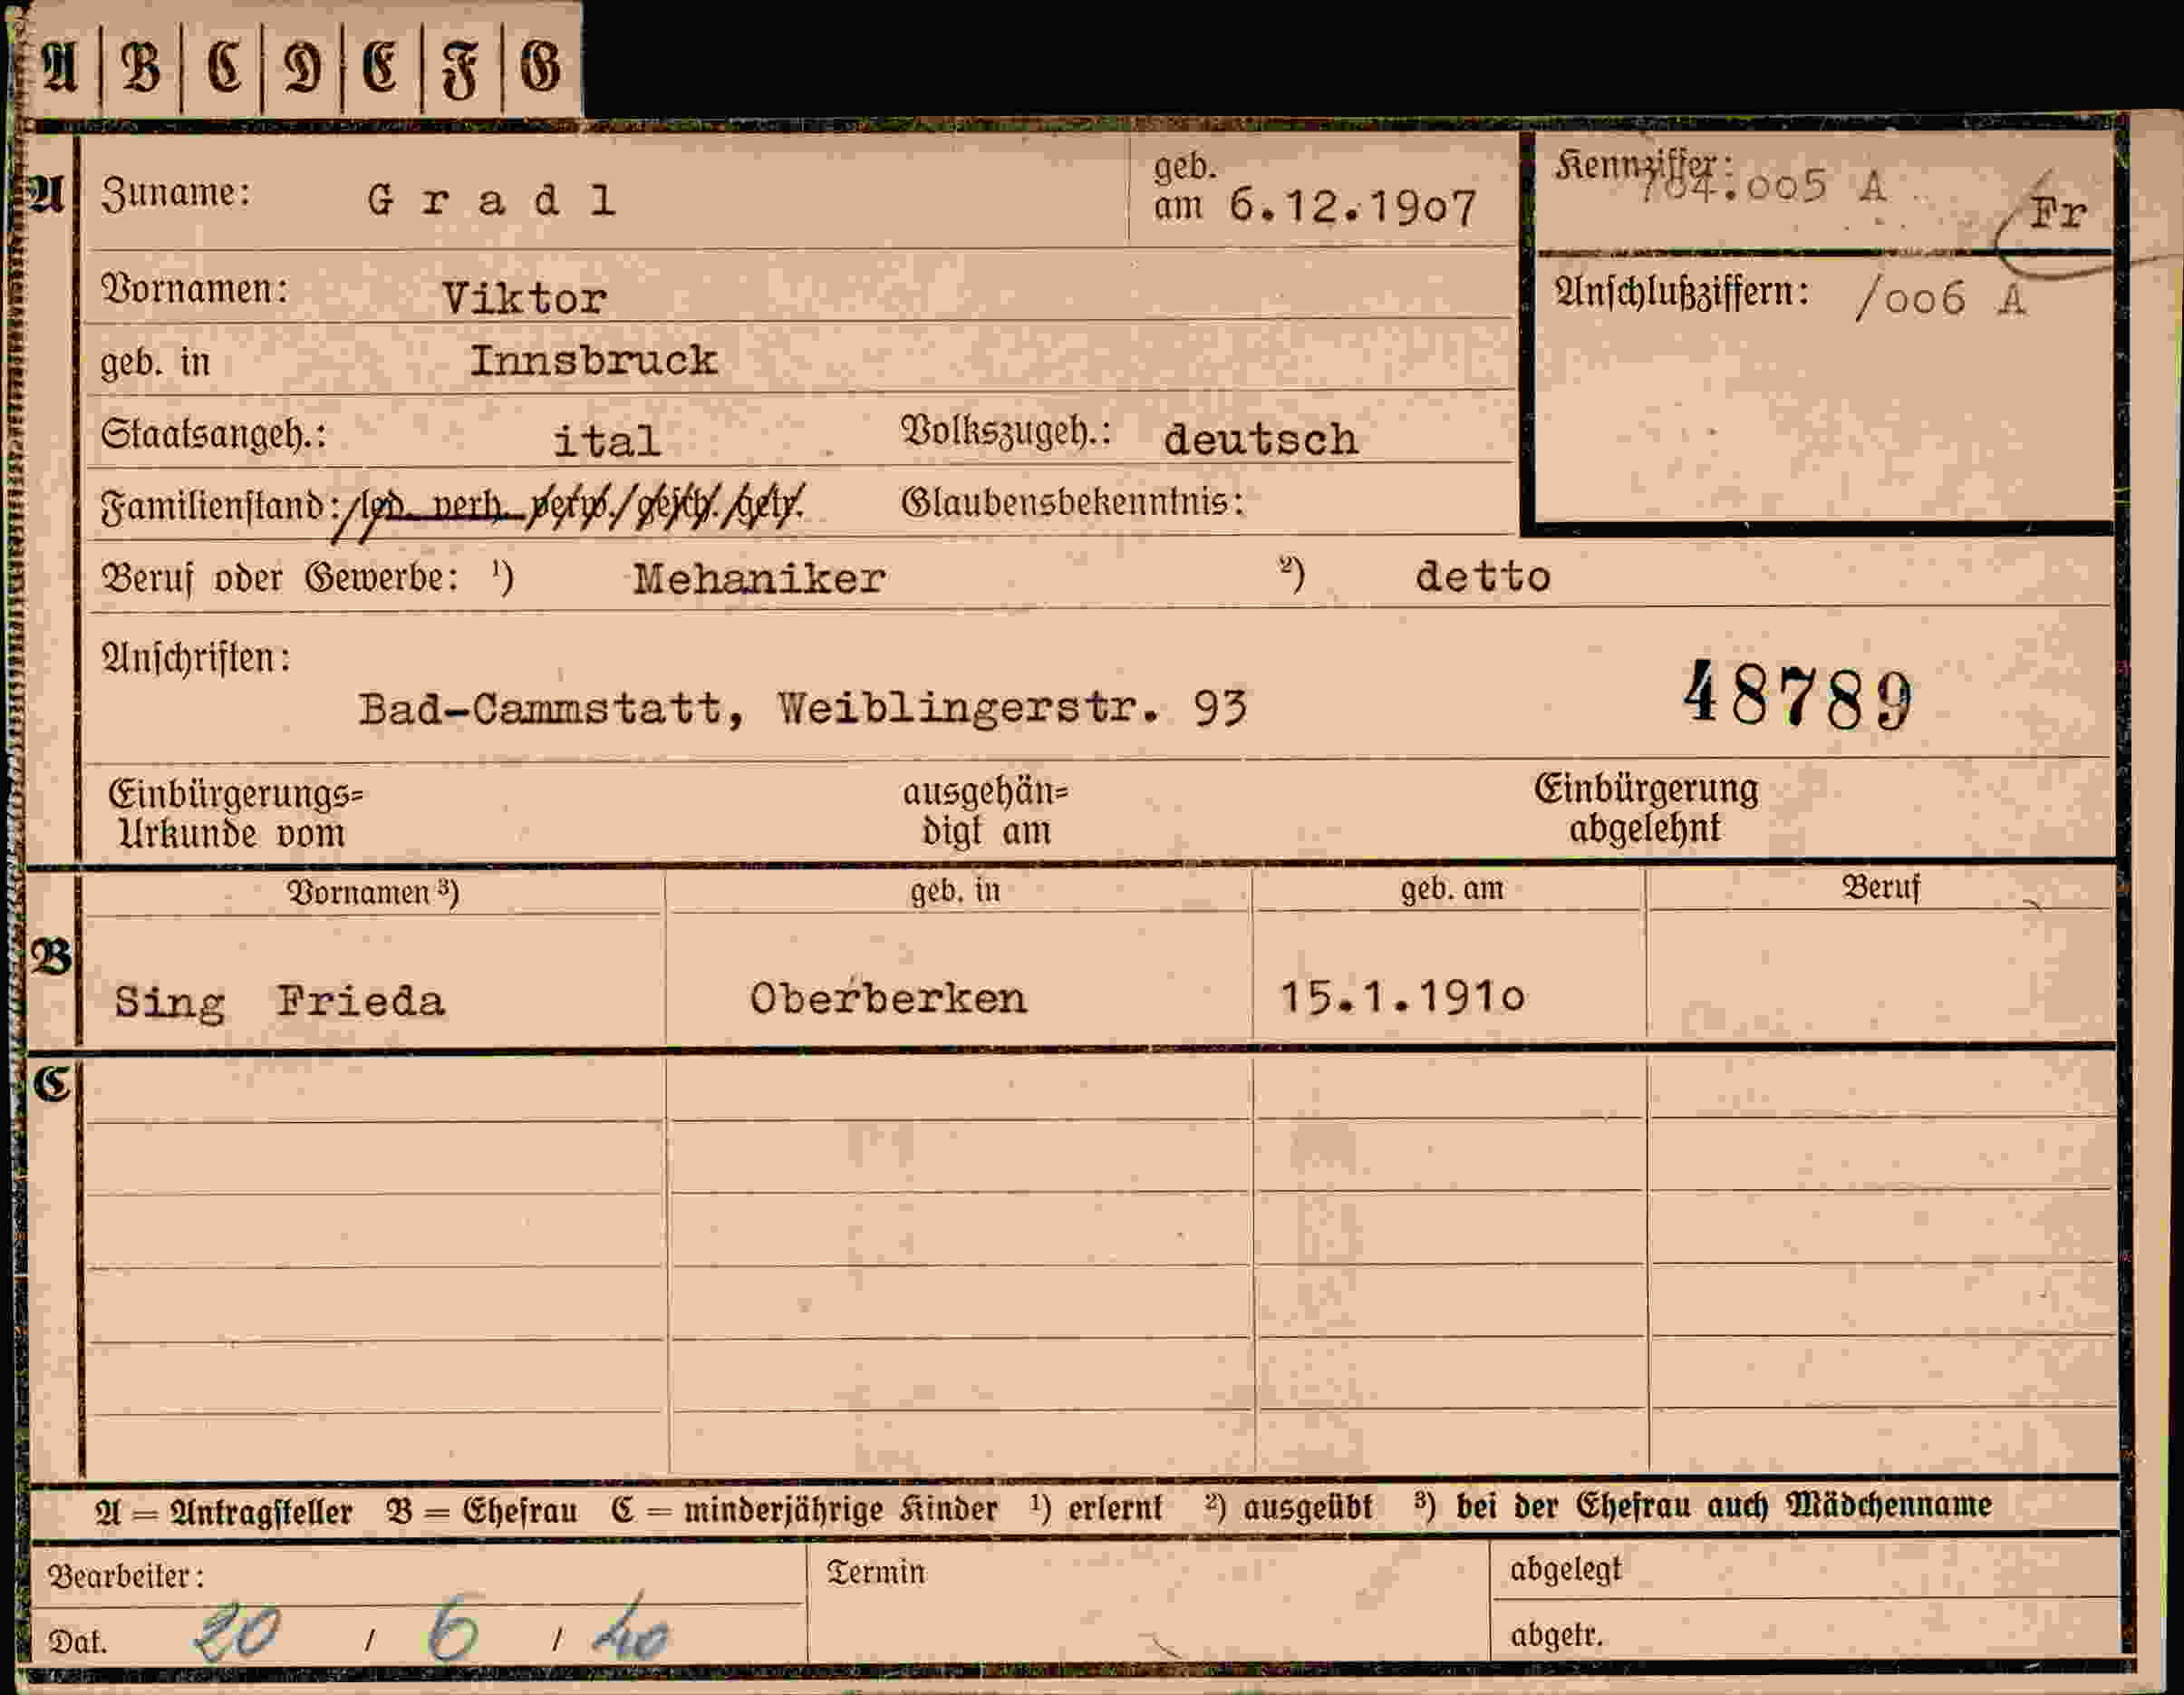 A | B | C | D | E | F | G
A Zuname: Gradl geb. am 6.12.1907 Kennziffer: 704.005 A Fr
Vornamen: Viktor Anschlußziffern: /006 A
geb. in Innsbruck
Staatsangeh.: ital Volkszugeh.: deutsch
Familienstand: led. verh. verw. gesch. getr. Glaubensbekenntnis:
Beruf oder Gewerbe: ¹) Mehaniker ²) detto
Anschriften:
Bad-Cammstatt, Weiblingerstr. 93 48789
Einbürgerungs= Urkunde vom ausgehän= digt am Einbürgerung abgelehnt
Vornamen ³) geb. in geb. am Beruf
B Sing Frieda Oberberken 15.1.1910
C
A = Antragsteller B = Ehefrau C = minderjährige Kinder ¹) erlernt ²) ausgeübt ³) bei der Ehefrau auch Mädchenname
Bearbeiter: Termin abgelegt
Dat. 20 / 6 / 40 abgetr.